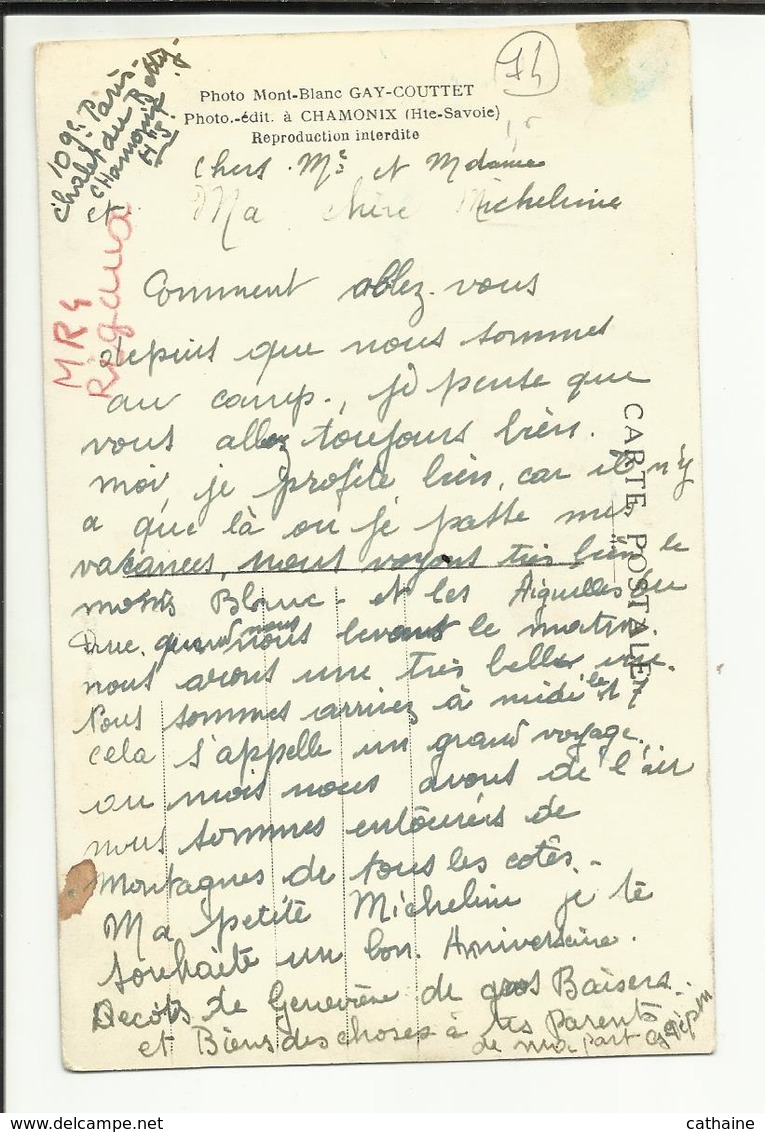 109e Paris-
Chalet du Betty
Chamonix
H S
74
Photo Mont-Blanc GAY-COUTTET
Photo.-édit. à CHAMONIX (Hte-Savoie)
Reproduction interdite
Chers Mr et Mdame
et Ma chère Micheline
MR4
CARTE POSTALE
Comment allez-vous
depuis que nous sommes
au camp., je pense que
vous allez toujours bien.
moi, je profite bien, car il n'y
a que là ou je passe mes
vacances, nous voyons très bien le
Blanc - et les Aiguilles du
quand nous levons le matin.
nous avons une très belle vue.
Nous sommes arrivez à midi le 17
cela s'appelle un grand voyage.
au mois nous avons de l'air
nous sommes entourés de
Montagnes de tous les cotés.-
Ma petite Michelin je te
souhaite un bon Anniversaire.
de Geneviève de gros Baisers..
et Biens des choses à tes Parents
de ma part
cathaine